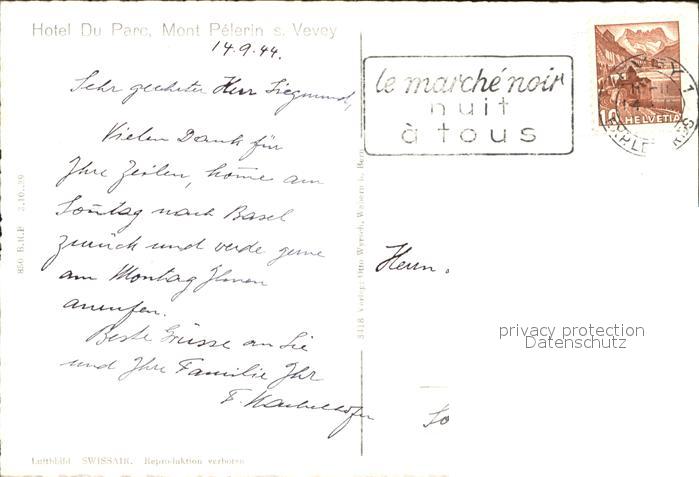 Hotel Du Parc, Mont Pélerin s. Vevey
14.9.44.
Sehr geehrter Herr Siegmund,
Vielen Dank für
Ihre Zeilen, komme am
Sonntag nach Basel
zurück und werde gerne
am Montag Ihnen
anrufen.
Beste Grüsse an Sie
und Ihre Familie Ihr
F.
Luftbild SWISSAIR. Reproduktion verboten
850 B.R.B 3.10.39
3118 Verlag: Otto Wyrsch, Wabern b. Bern
le marché noir
nuit
à tous
VEVEY 1
10 HELVETIA
Herrn
So
privacy protection
Datenschutz